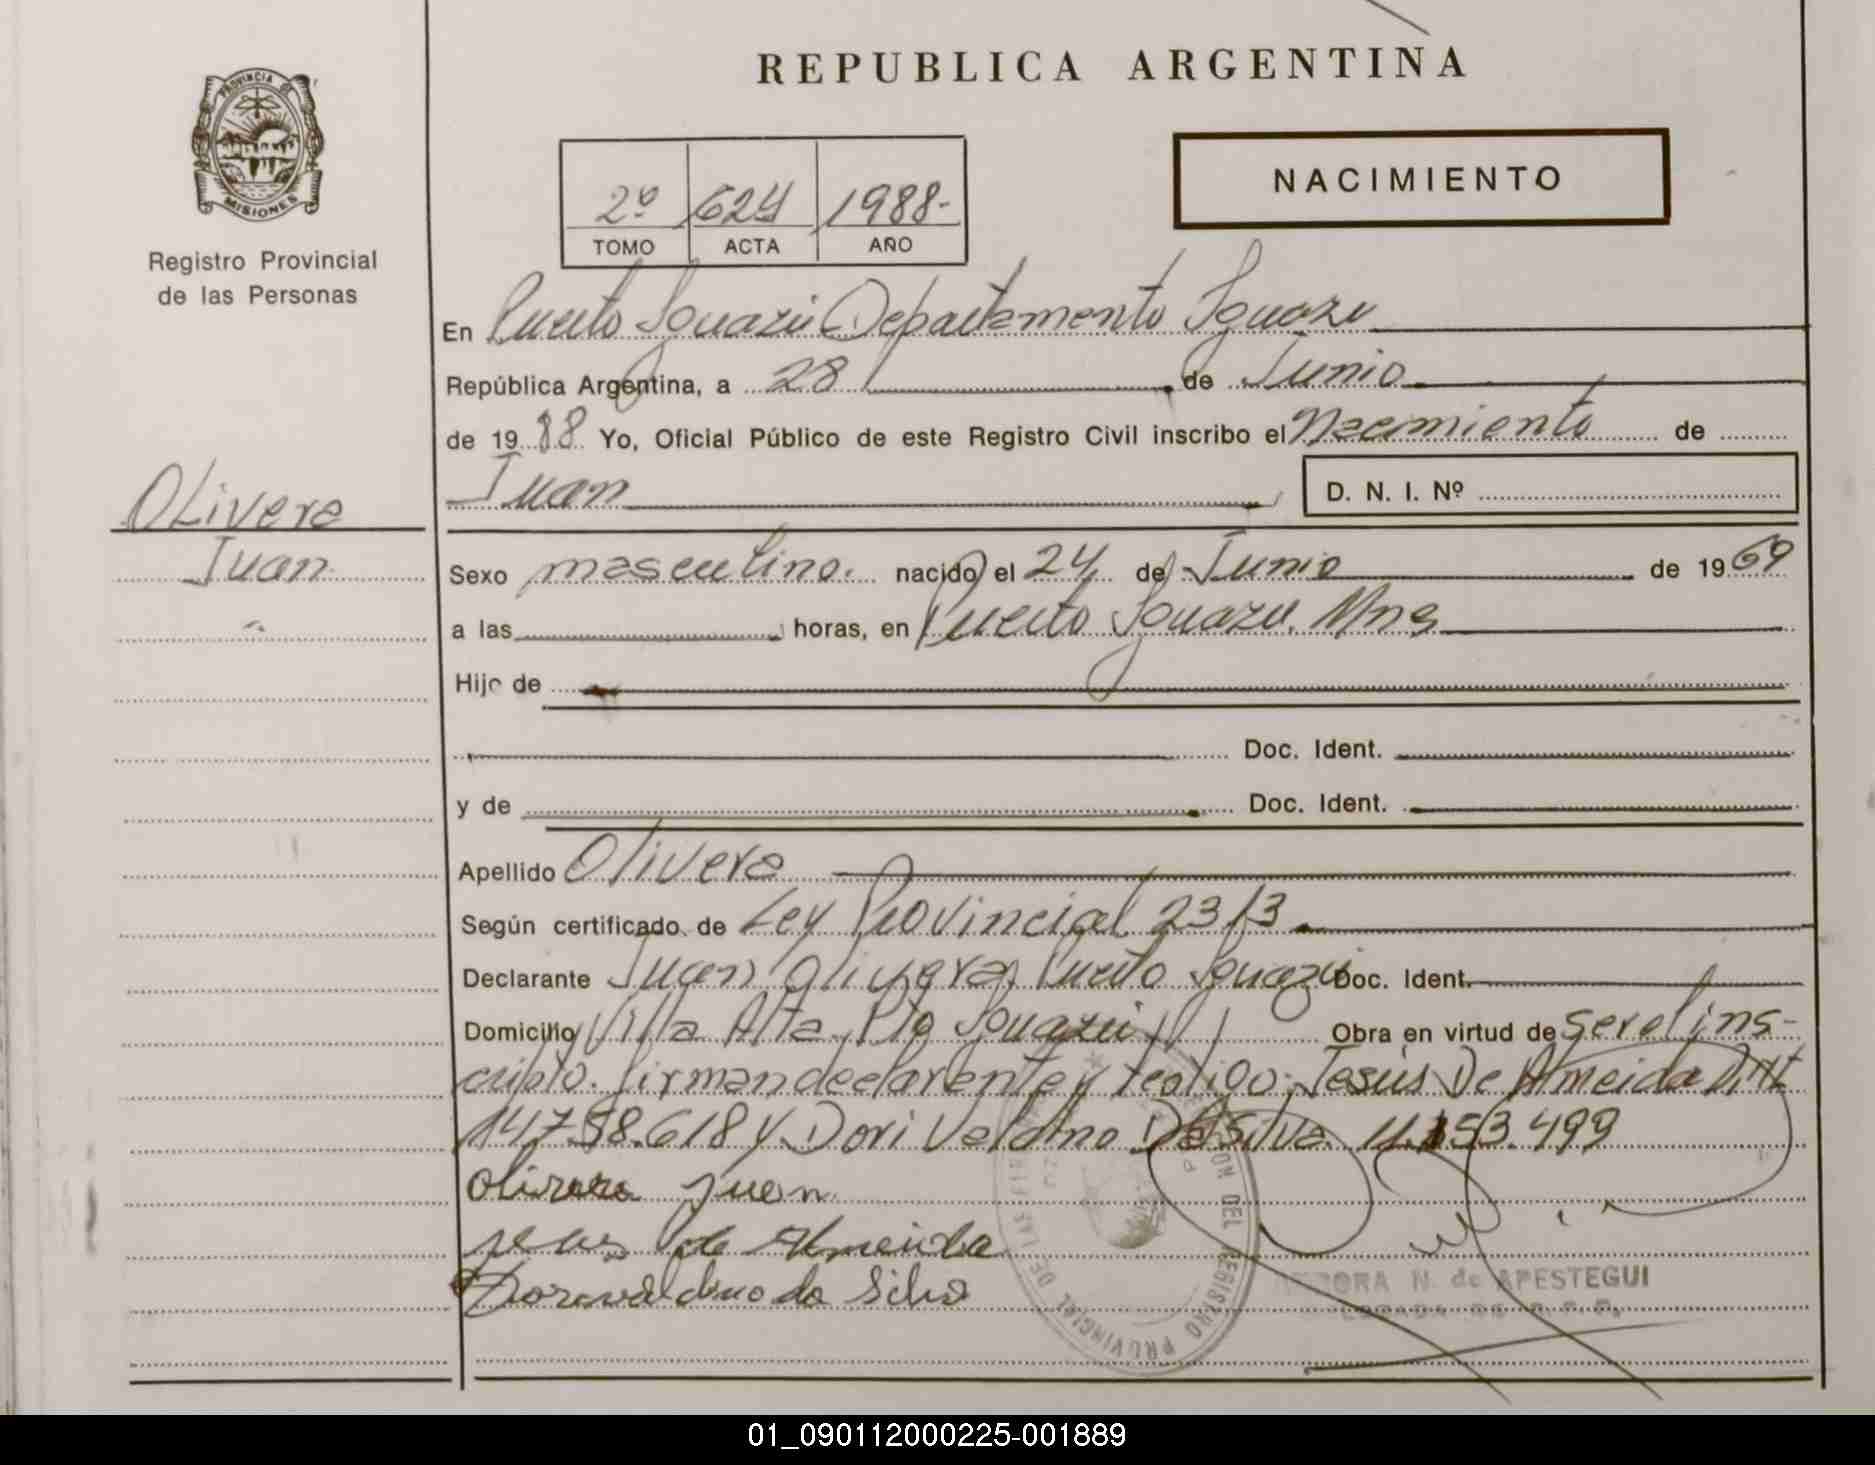 REPUBLICA ARGENTINA
PROVINCIA DE
MISIONES
Registro Provincial
de las Personas
NACIMIENTO
2º 624 1988-
TOMO ACTA AÑO
En Puerto Iguazú Departamento Iguazu
República Argentina, a 28 de Junio
de 1988 Yo, Oficial Público de este Registro Civil inscribo el Nacimiento de
Juan D. N. I. Nº
Olivera
Juan
Sexo masculino. nacido el 24 de Junio de 1969
a las horas, en Puerto Iguazu. Mns
Hijo de
Doc. Ident.
y de Doc. Ident.
Apellido Olivera
Según certificado de Ley Provincial 2313
Declarante Juan Olivera, Puerto Iguazú Doc. Ident.
Domicilio Villa Alta Pto Iguazú Obra en virtud de ser el ins-
cripto. Firman declarante y testigo: Jesús De Almeida
14.758.618 y Dori Valdino Da Silva 11.153.499
Olivera Juan
Jesus de Almeida
Dorivaldino da Silva
N. de APESTEGUI
REGISTRO PROVINCIAL DE LAS
01_090112000225-001889